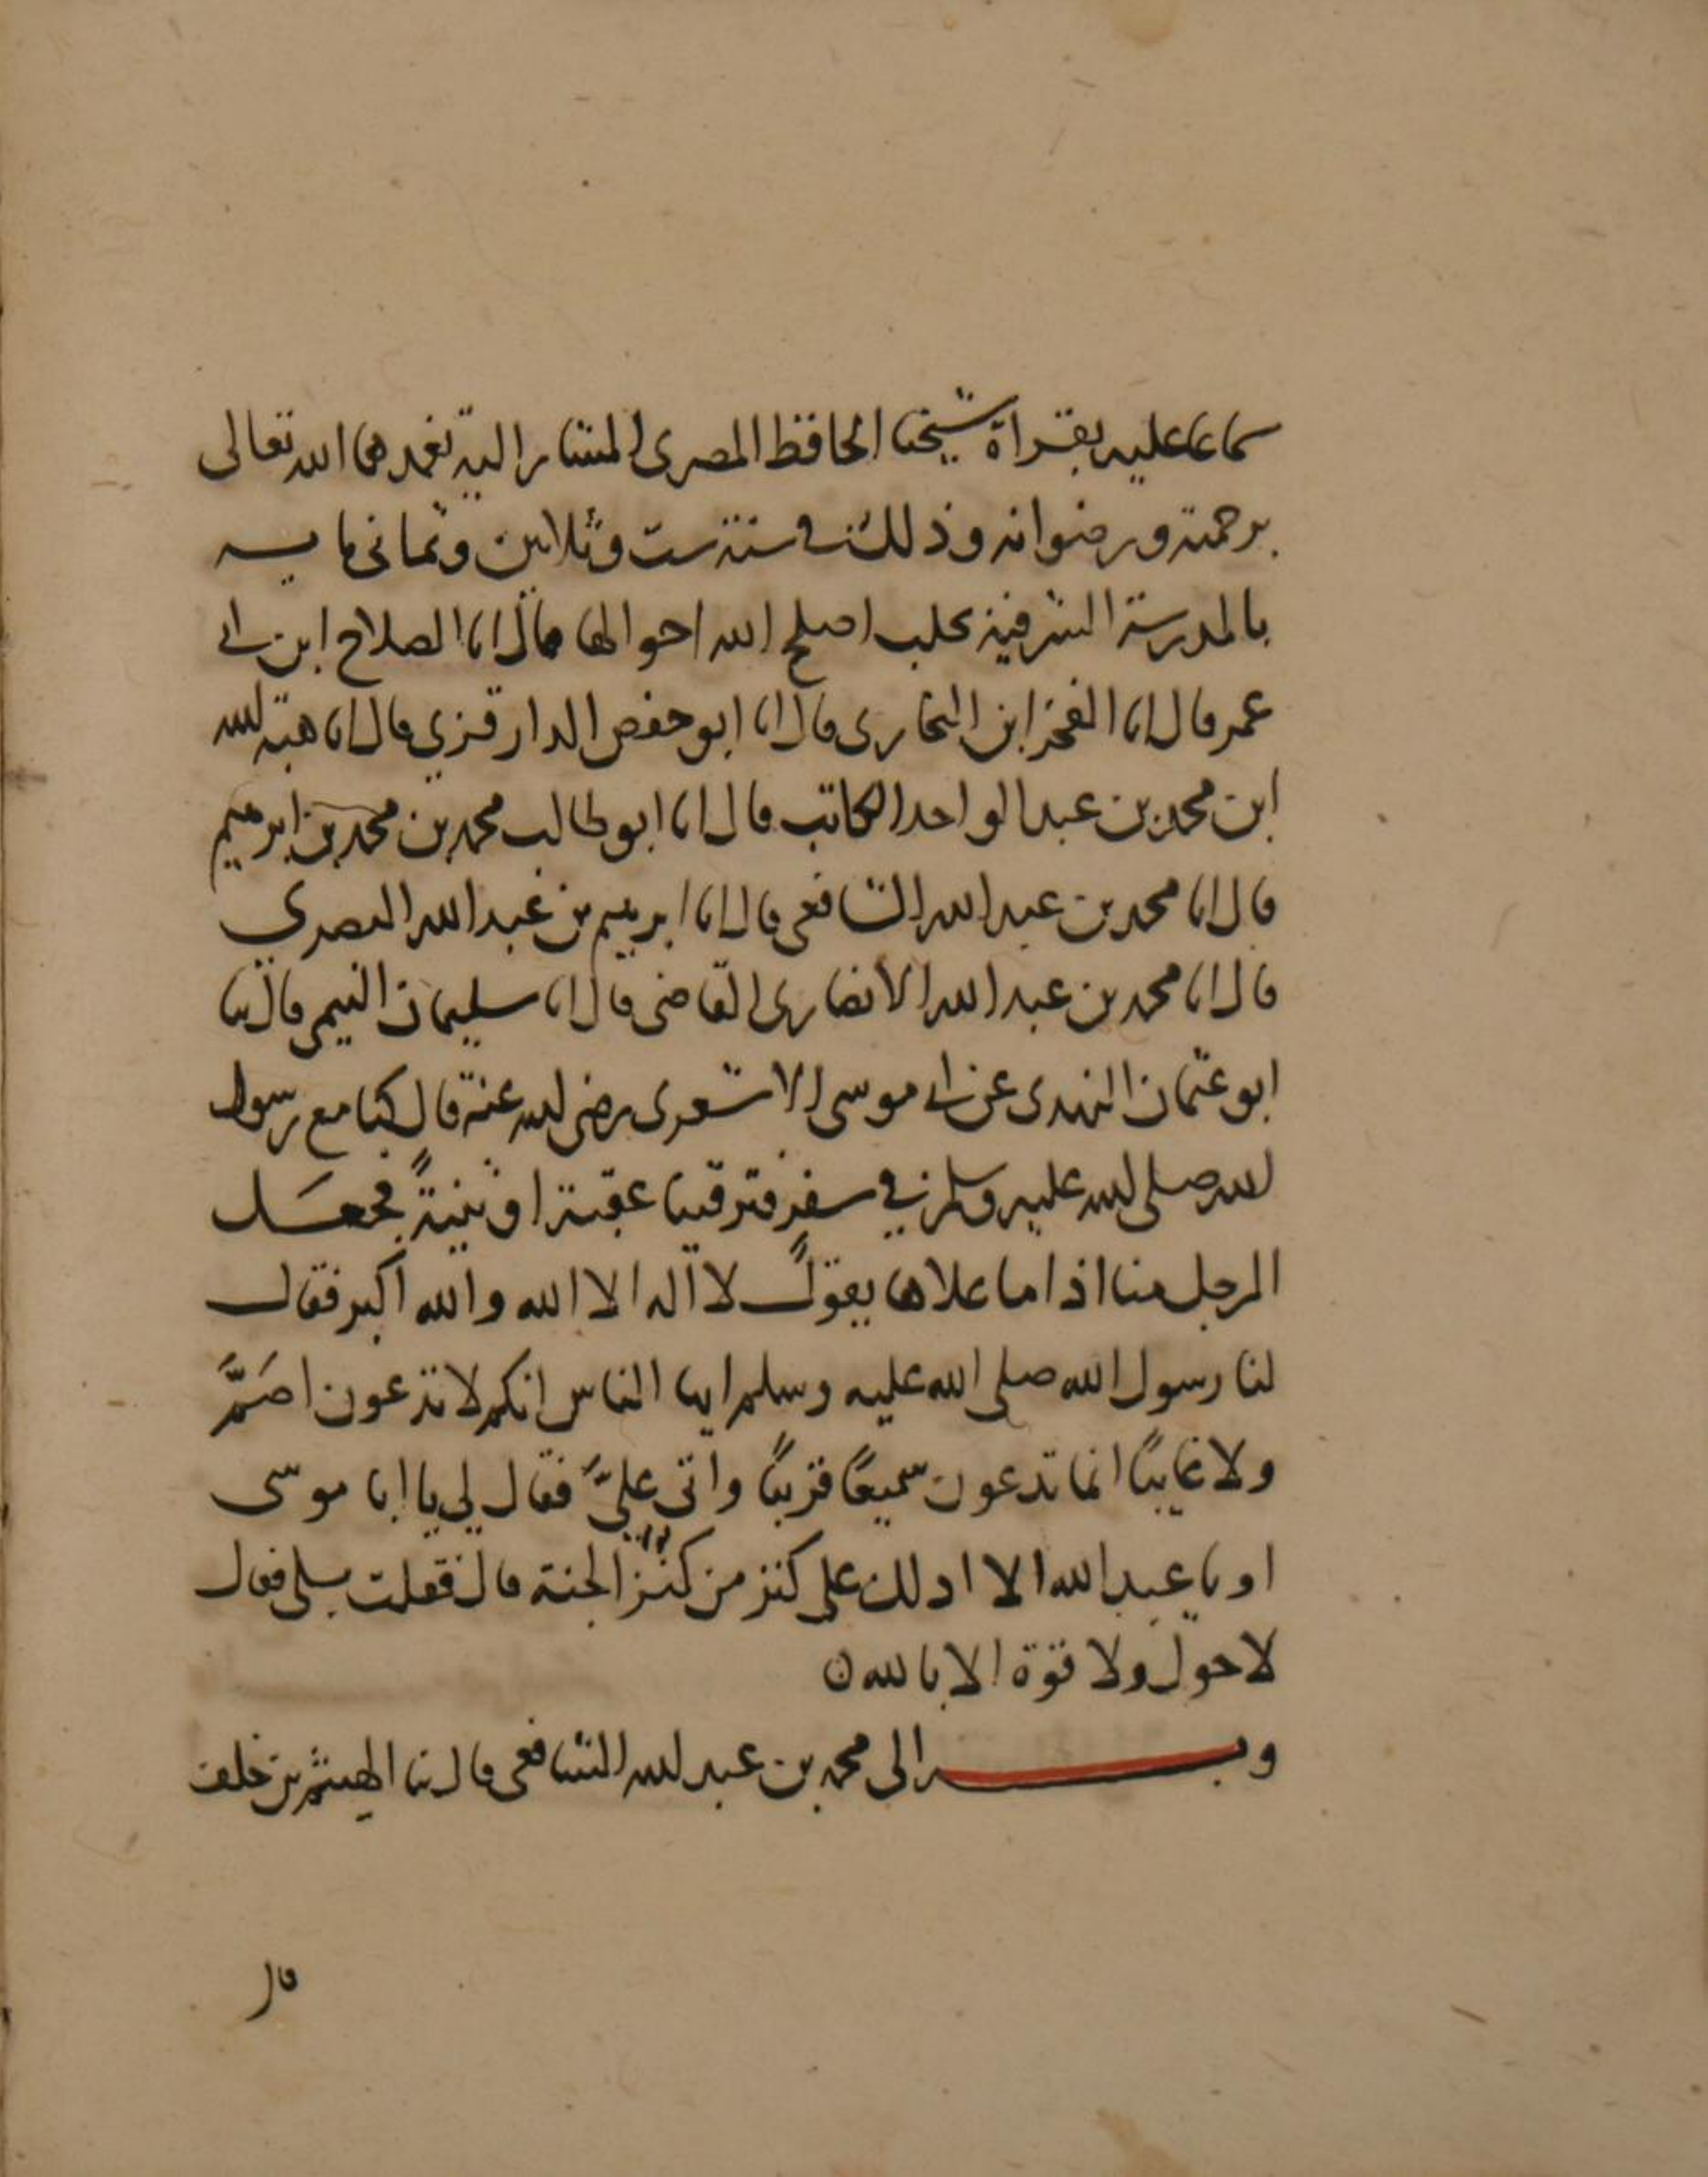 سماعا عليه بقراة شيخنا الحافظ المصرى المشار اليه تغمدهما الله تعالى
برحمته ورضوانه وذلك فى سنة ست وثلاثين وثمانى مايه
بالمدرسة الشرفية بحلب اصلح الله احوالها قال انا الصلاح ابن ابى
عمر قال انا الفخر ابن البخارى قال انا ابو حفص الدارقزي قال انا هبة الله
ابن محمد بن عبد الواحد الكاتب قال انا ابو طالب محمد بن محمد بن ابرهيم
قال انا محمد بن عبد الله الشافعى قال انا ابرهيم بن عبد الله البصري
قال انا محمد بن عبد الله الأنصارى القاضى قال انا سليمان التيمى قال ثنا
ابو عثمان النهدى عن ابى موسى الاشعرى رضى الله عنه قال كنا مع رسول
الله صلى الله عليه وسلم في سفر فترقينا عقبة او ثنيةً فجعل
الرجل منا اذا ما علاها يقول لا اله الا الله والله اكبر فقال
لنا رسول الله صلى الله عليه وسلم ايها الناس انكم لا تدعون اصَمَّ
ولا غايبًا انما تدعون سميعًا قريبًا واتى عليَّ فقال لي يا ابا موسى
او يا عبد الله الا ادلك على كنز من كنز الجنة قال فقلت بلى فقال
لا حول ولا قوة الا بالله ن
وبه الى محمد بن عبد الله الشافعى قال ثنا الهيثم بن خلف
قال